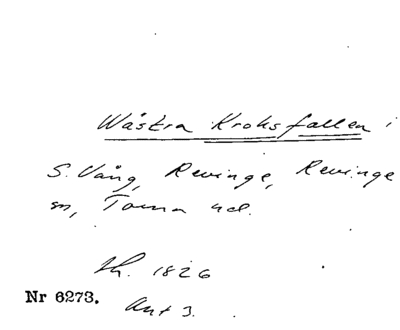 Wästra Kroksfallen i
S. Vång, Revinge, Revinge
sn, Torna hd.
Sk. 1826
Nr 6273.
Akt 3.